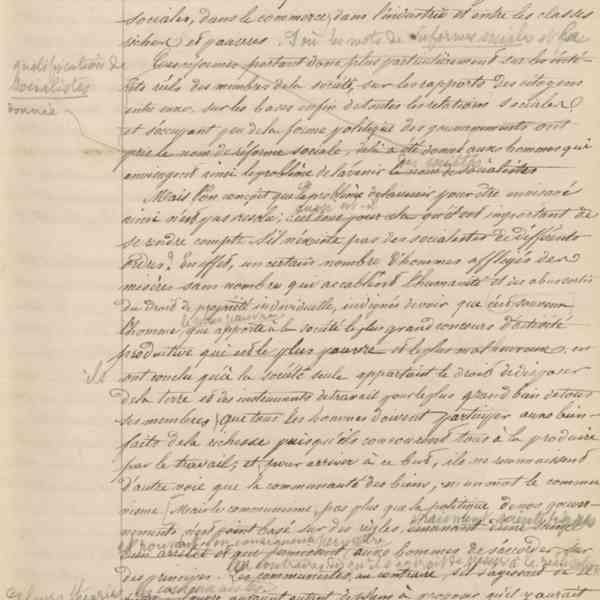 sociales, dans le commerce, dans l'industrie et entre les classes
riches et pauvres. D'où les mots de réforme sociale
qualification de
socialistes
donnée
Ces réformes portant donc plus particulièrement sur les inté-
rêts réels des membres de la société, sur les rapports des citoyens
entre eux, sur les bases enfin de toutes les relations sociales
et s'occupant peu de la forme politique des gouvernements ont
pris le nom de réforme sociale, de là a été donné aux hommes qui
envisagent ainsi le problème de l'avenir le nom de socialistes
Mais l'on conçoit que le problème de l'avenir pour être envisagé
ainsi n'est pas résolu; c'est donc pour cela qu'il est important de
se rendre compte s'il n'existe pas des socialistes de différents
ordres? En effet, un certain nombre d'hommes affligés des
misères sans nombre qui accablent l'humanité et des abus sortis
du droit de propriété individuelle, indignés de voir que c'est souvent
l'homme qui apporte à la société le plus grand concours d'activité
productive qui est le plus pauvre et le plus malheureux, en
ils
ont conclu qu'à la société seule appartient le droit de disposer
de la terre et des instruments de travail pour le plus grand bien de tous
ses membres, que tous les hommes doivent participer aux bien-
faits de la richesse puisqu'ils concourent tous à la produire
par le travail; et, pour arriver à ce but, ils ne reconnaissent
d'autre voie que la communauté des biens, en un mot le commu-
nisme. Mais le communisme, pas plus que la politique de nos gouver-
nements n'est point basé sur des règles
bien arrêté et qui permettent aux hommes de s'accorder sur
des principes. Les communistes, au contraire,